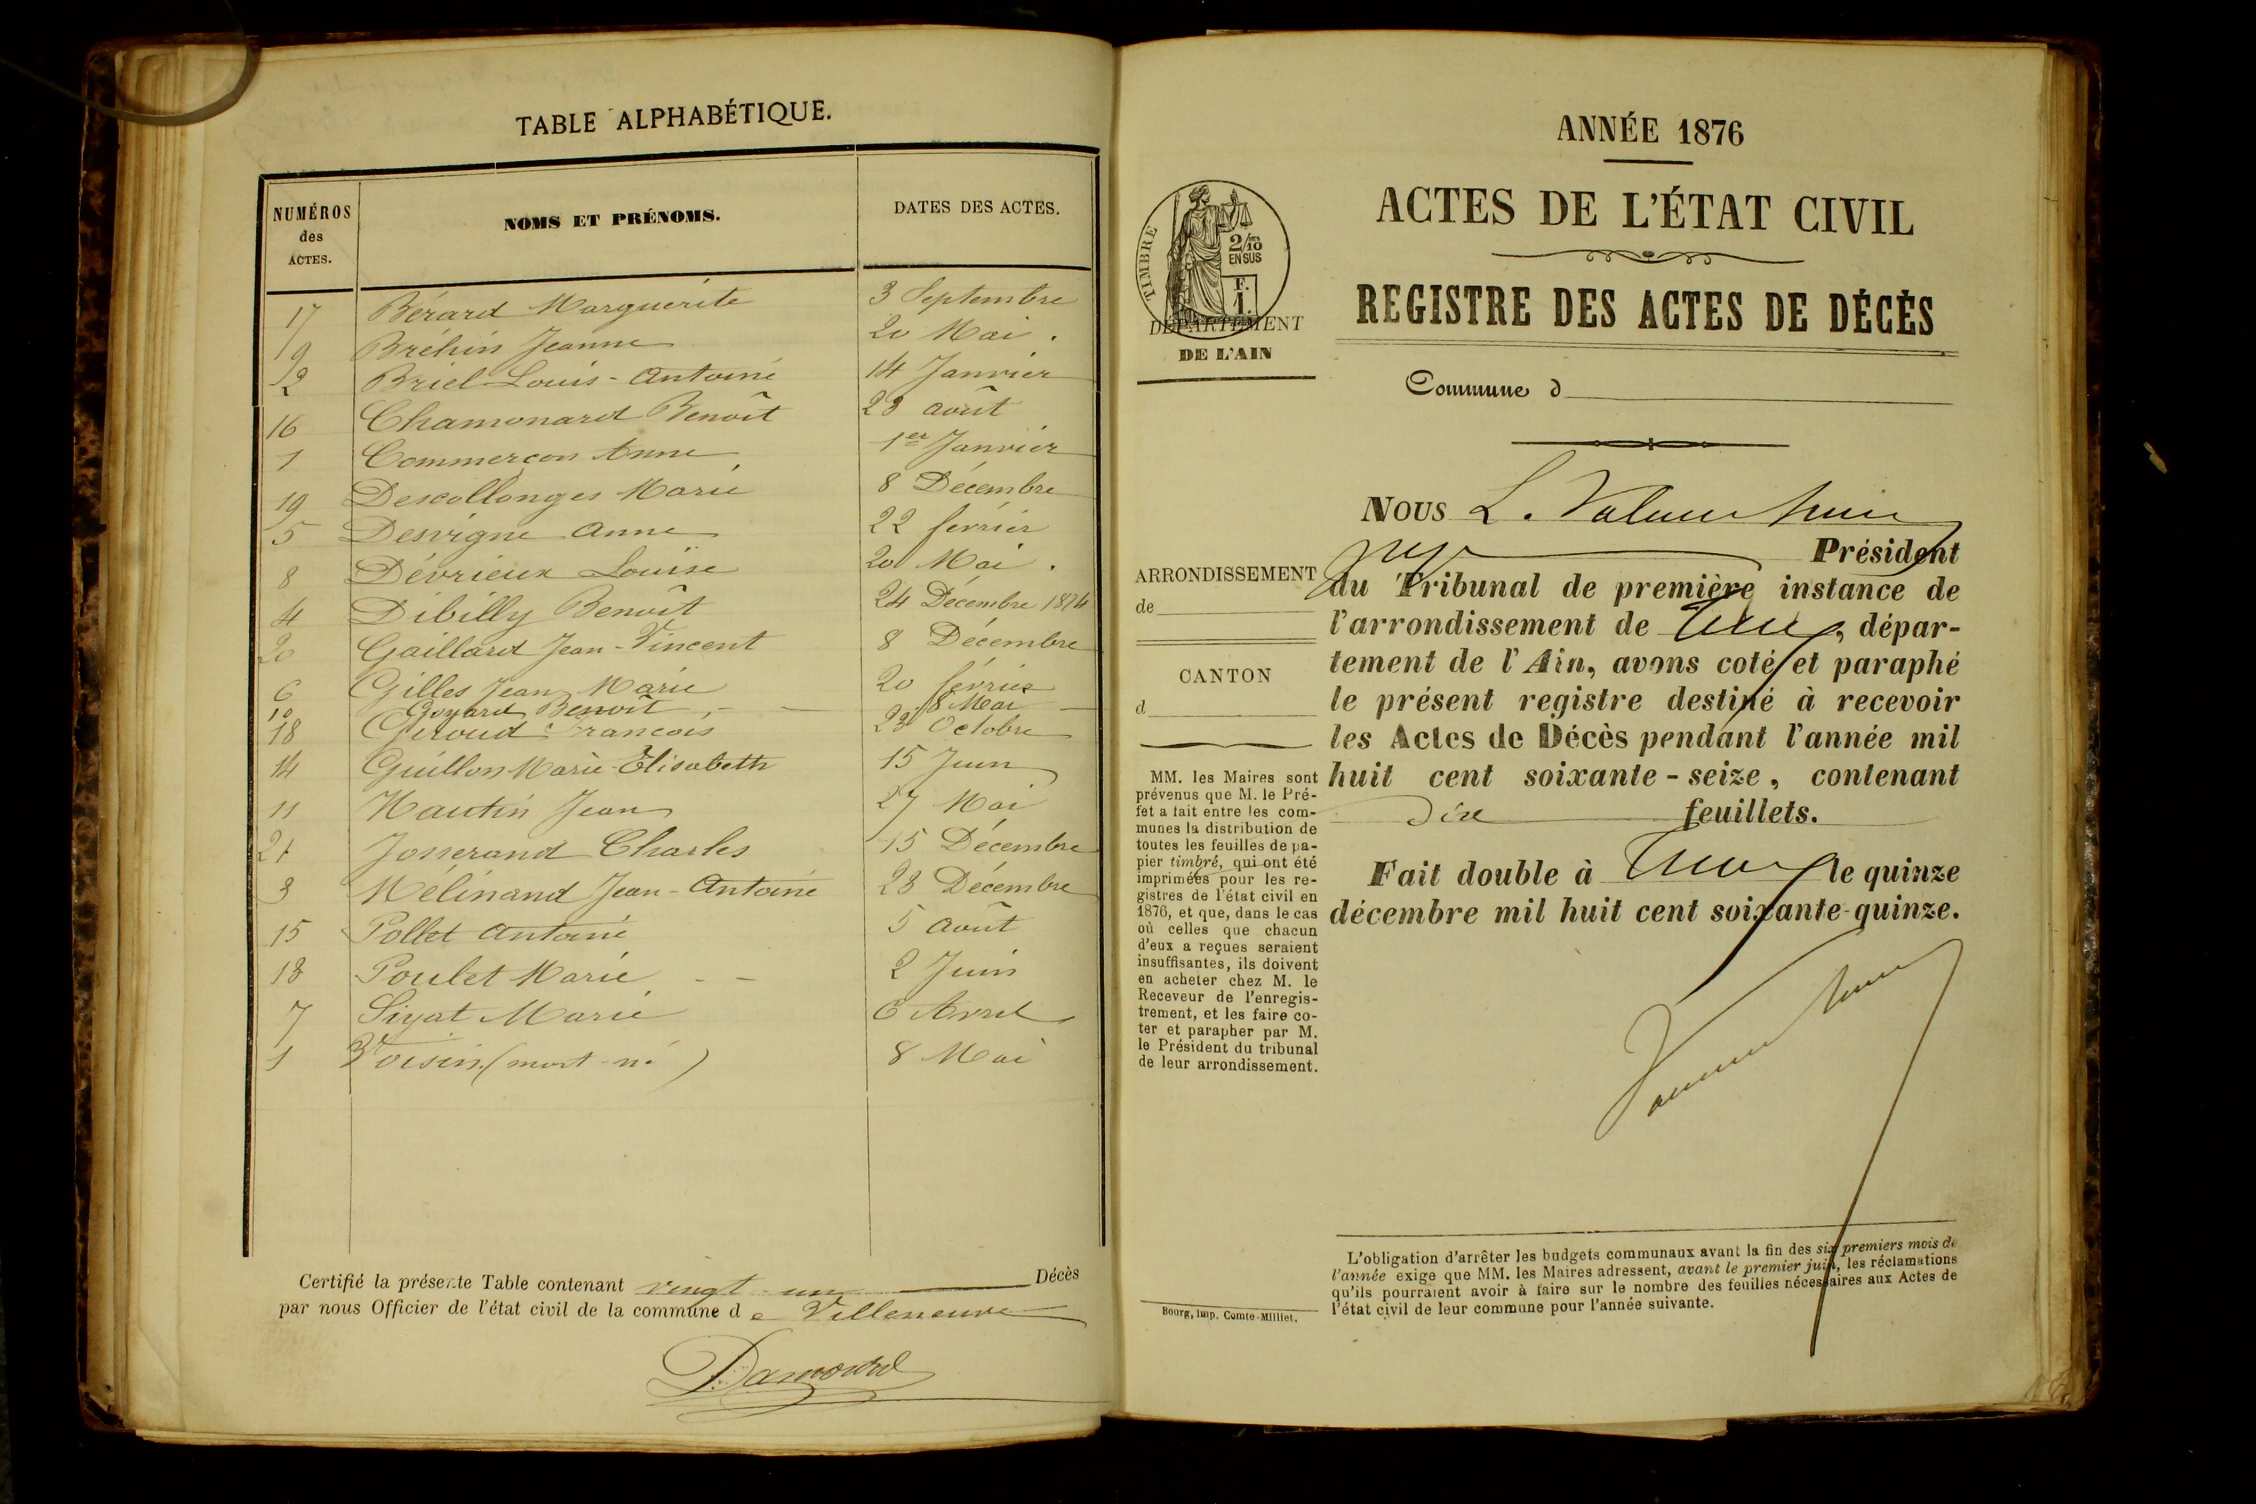 TABLE ALPHABÉTIQUE.
NUMÉROS des ACTES. NOMS ET PRÉNOMS. DATES DES ACTES.
17 Bérard Marguerite 3 Septembre
9 Bréhin Jeanne 20 Mai.
2 Briel Louis-Antoine 14 Janvier
16 Chamonard Benoît 23 août
1 Commerçon Anne 1er Janvier
19 Descollonges Marie 8 Décembre
5 Desvigne Anne 22 février
8 Dévrieux Louise 20 Mai.
4 Dibilly Benoît 24 Décembre 1874
20 Gaillard Jean-Vincent 8 Décembre
6 Gilles Jean Marie 20 février
10 Goyard Benoît 8 Mai
18 Giroud François 23 Octobre
14 Guillon Marie-Elisabeth 15 Juin
11 Hautin Jean 27 Mai
21 Josserand Charles 15 Décembre
3 Mélinand Jean-Antoine 23 Décembre
15 Pollet Antoine 5 Août
13 Poulet Marie 2 Juin
7 Siyat Marie 6 Avril
1 Voisin (mort-né) 8 Mai
Certifié la présente Table contenant vingt-un Décès
par nous Officier de l'état civil de la commune de Villeneuve
ANNÉE 1876
ACTES DE L'ÉTAT CIVIL
REGISTRE DES ACTES DE DÉCÈS
TIMBRE
2/10 EN SUS
F. 1.
DÉPARTEMENT
DE L'AIN
Commune d
ARRONDISSEMENT
de
CANTON
d
MM. les Maires sont
prévenus que M. le Pré-
fet a fait entre les com-
munes la distribution de
toutes les feuilles de pa-
pier timbré, qui ont été
imprimées pour les re-
gistres de l'état civil en
1876, et que, dans le cas
où celles que chacun
d'eux a reçues seraient
insuffisantes, ils doivent
en acheter chez M. le
Receveur de l'enregis-
trement, et les faire co-
ter et parapher par M.
le Président du tribunal
de leur arrondissement.
Bourg, imp. Comte-Milliet.
NOUS L.
Président
du Tribunal de première instance de
l'arrondissement de , dépar-
tement de l'Ain, avons coté et paraphé
le présent registre destiné à recevoir
les Actes de Décès pendant l'année mil
huit cent soixante-seize, contenant
dix feuillets.
Fait double à le quinze
décembre mil huit cent soixante-quinze.
L'obligation d'arrêter les budgets communaux avant la fin des six premiers mois de
l'année exige que MM. les Maires adressent, avant le premier juin, les réclamations
qu'ils pourraient avoir à faire sur le nombre des feuilles nécessaires aux Actes de
l'état civil de leur commune pour l'année suivante.